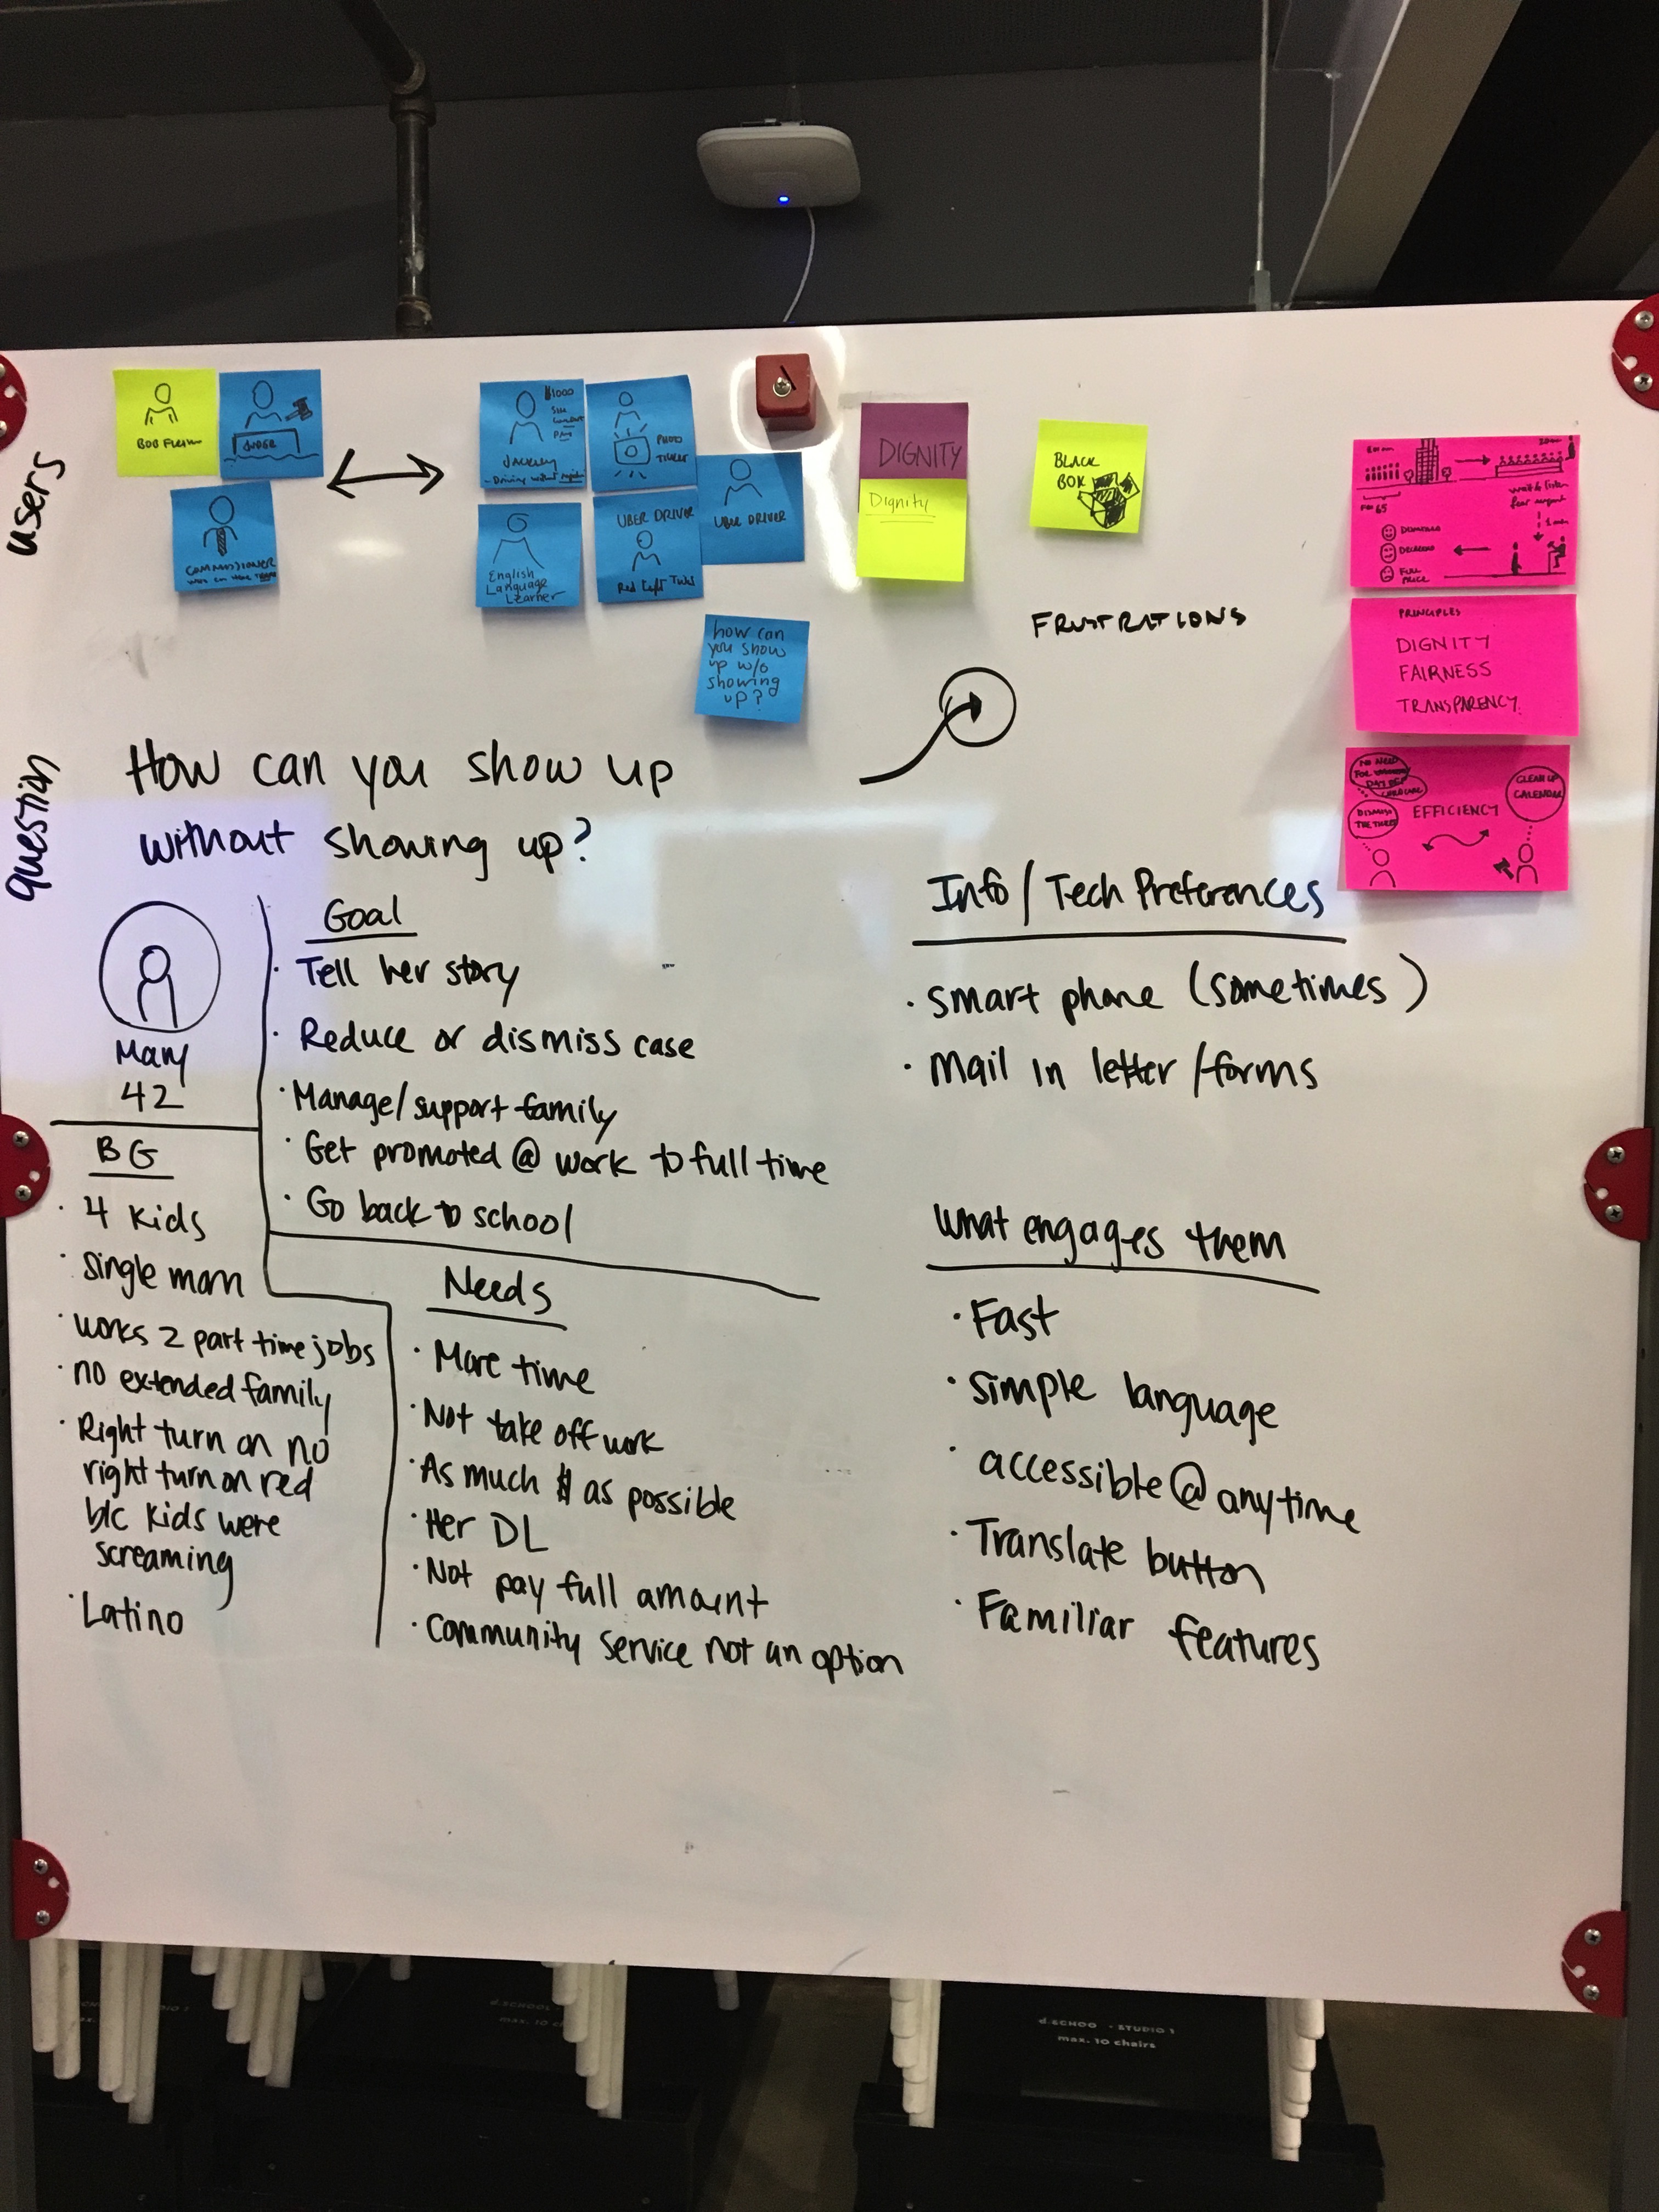 users
BOB
JUDGE
COMMISSIONER
$1000
PAY
Driving without
PHOTO
TICKET
English
Language
Learner
UBER DRIVER
Red Left Turn
UBER DRIVER
how can
you show
up w/o
showing
up?
DIGNITY
Dignity
BLACK
BOX
FRUSTRATIONS
wait & listen
fear
DISMISSED
DECREASED
FULL
PRICE
PRINCIPLES
DIGNITY
FAIRNESS
TRANSPARENCY.
NO NEED
FOR
DAY OFF
CHILDCARE
DISMISS
THE TICKET
EFFICIENCY
CLEAN UP
CALENDAR
question
How can you show up
without showing up?
Mary
42
BG
· 4 kids
· single mom
· works 2 part time jobs
· no extended family
· Right turn on no
right turn on red
b/c kids were
screaming
· Latino
Goal
· Tell her story
· Reduce or dismiss case
· Manage/support family
· Get promoted @ work to full time
· Go back to school
Needs
· More time
· Not take off work
· As much $ as possible
· Her DL
· Not pay full amount
· Community service not an option
Info / Tech Preferences
· smart phone (sometimes)
· Mail in letter / forms
What engages them
· Fast
· simple language
· accessible @ anytime
· Translate button
· Familiar features
d.SCHOOL
max. 10
d.SCHOO - STUDIO 1
max. 10 chairs